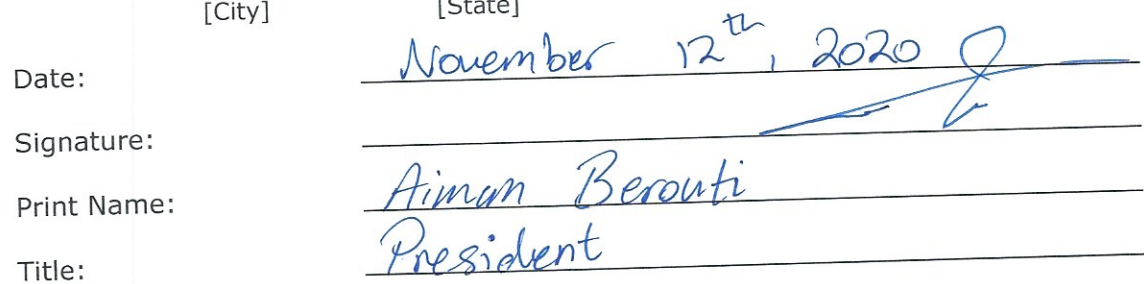 [City] [State]
Date: November 12th, 2020
Signature:
Print Name: Aiman Berouti
Title: President